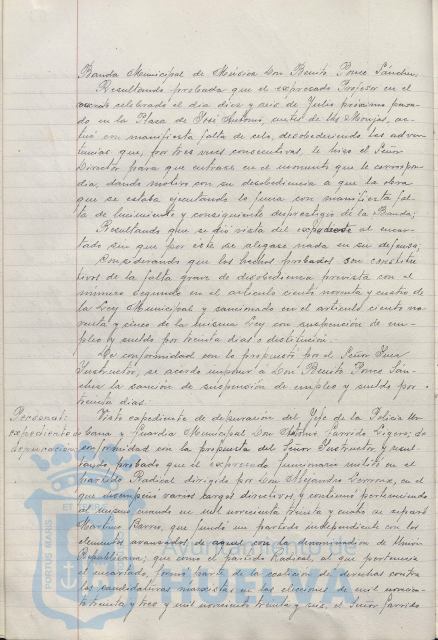 Banda Municipal de Música Don Benito Ponce Sánchez.
Resultando probado que el expresado Profesor en el
celebrado el día diez y seis de Julio próximo pasa-
do en la Plaza de José Antonio, antes de las Monjas, ac-
tuó con manifiesta falta de celo, desobedeciendo las adver-
tencias que, por tres veces consecutivas, le hizo el Señor
Director para que entrase en el momento que le correspon-
día, dando motivo con su desobediencia a que la obra
que se estaba ejecutando lo fuera con manifiesta fal-
ta de lucimiento y consiguiente desprestigio de la Banda;
Resultando que se dió vista del expediente al encar-
tado sin que por este se alegase nada en su defensa;
Considerando que los hechos probados son constitu-
tivos de la falta grave de desobediencia prevista con el
número segundo en el artículo ciento noventa y cuatro de
la Ley Municipal y sancionado en el artículo ciento no-
venta y cinco de la misma Ley con suspensión de em-
pleo y sueldo por treinta días o destitución.
De conformidad con lo propuesto por el Señor Juez
Instructor, se acordó imponer a Don Benito Ponce Sán-
chez la sanción de suspensión de empleo y sueldo por
treinta días.
Personal: Visto expediente de depuración del Jefe de la Policía Ur-
expediente de bana y Guardia Municipal Don Garrido Ligero; de
depuración. conformidad con la propuesta del Señor Instructor y resul-
tando probado que el expresado funcionario militó en el
partido Radical dirigido por Don Alejandro Lerroux, en el
que desempeñó varios cargos directivos, y continuó perteneciendo
al mismo cuando en mil novecientos treinta y cuatro se separó
Martínez Barrio, que fundó un partido independiente con los
elementos avanzados de aquel con la denominación de Unión
Republicana; que como el partido Radical, al que pertenecía
el encartado, formó parte de la coalición de derechas contra
las candidaturas marxistas en las elecciones de mil novecien-
tos treinta y tres y mil novecientos treinta y seis, el Señor Garrido
PORTUS MARIS ET
Ayuntamiento de
HUELVA